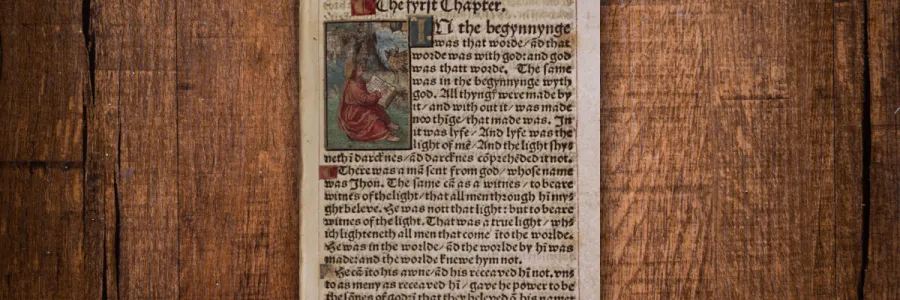 The fyrst Chapter.
IN the begynnynge
was that worde/ ād that
worde was with god: and god
was thatt worde. The same
was in the begynnynge wyth
god. All thyngs were made by
it/ and with out it/ was made
noo thīge/ that made was. In
it was lyfe/ And lyfe was the
light of mē/ And the light shys
neth ī darcknes/ ād darcknes cōprehēded it not.
There was a mā sent from god/ whose name
was Jhon. The same cā as a witnes/ to beare
witnes of the light/ that all men through hī mys
ght beleve. He was nott that light: but to beare
witnes of the light. That was a true light/ whs
ich lighteneth all men that come īto the worlde.
He was in the worlde/ ād the worlde by hī was
made: and the worlde knewe hym not.
He cā īto his awne/ ād his receaved hī not. vns
to as meny as receaved hī/ gave he power to be
the sōnes of god: ī that they beleved ō his name